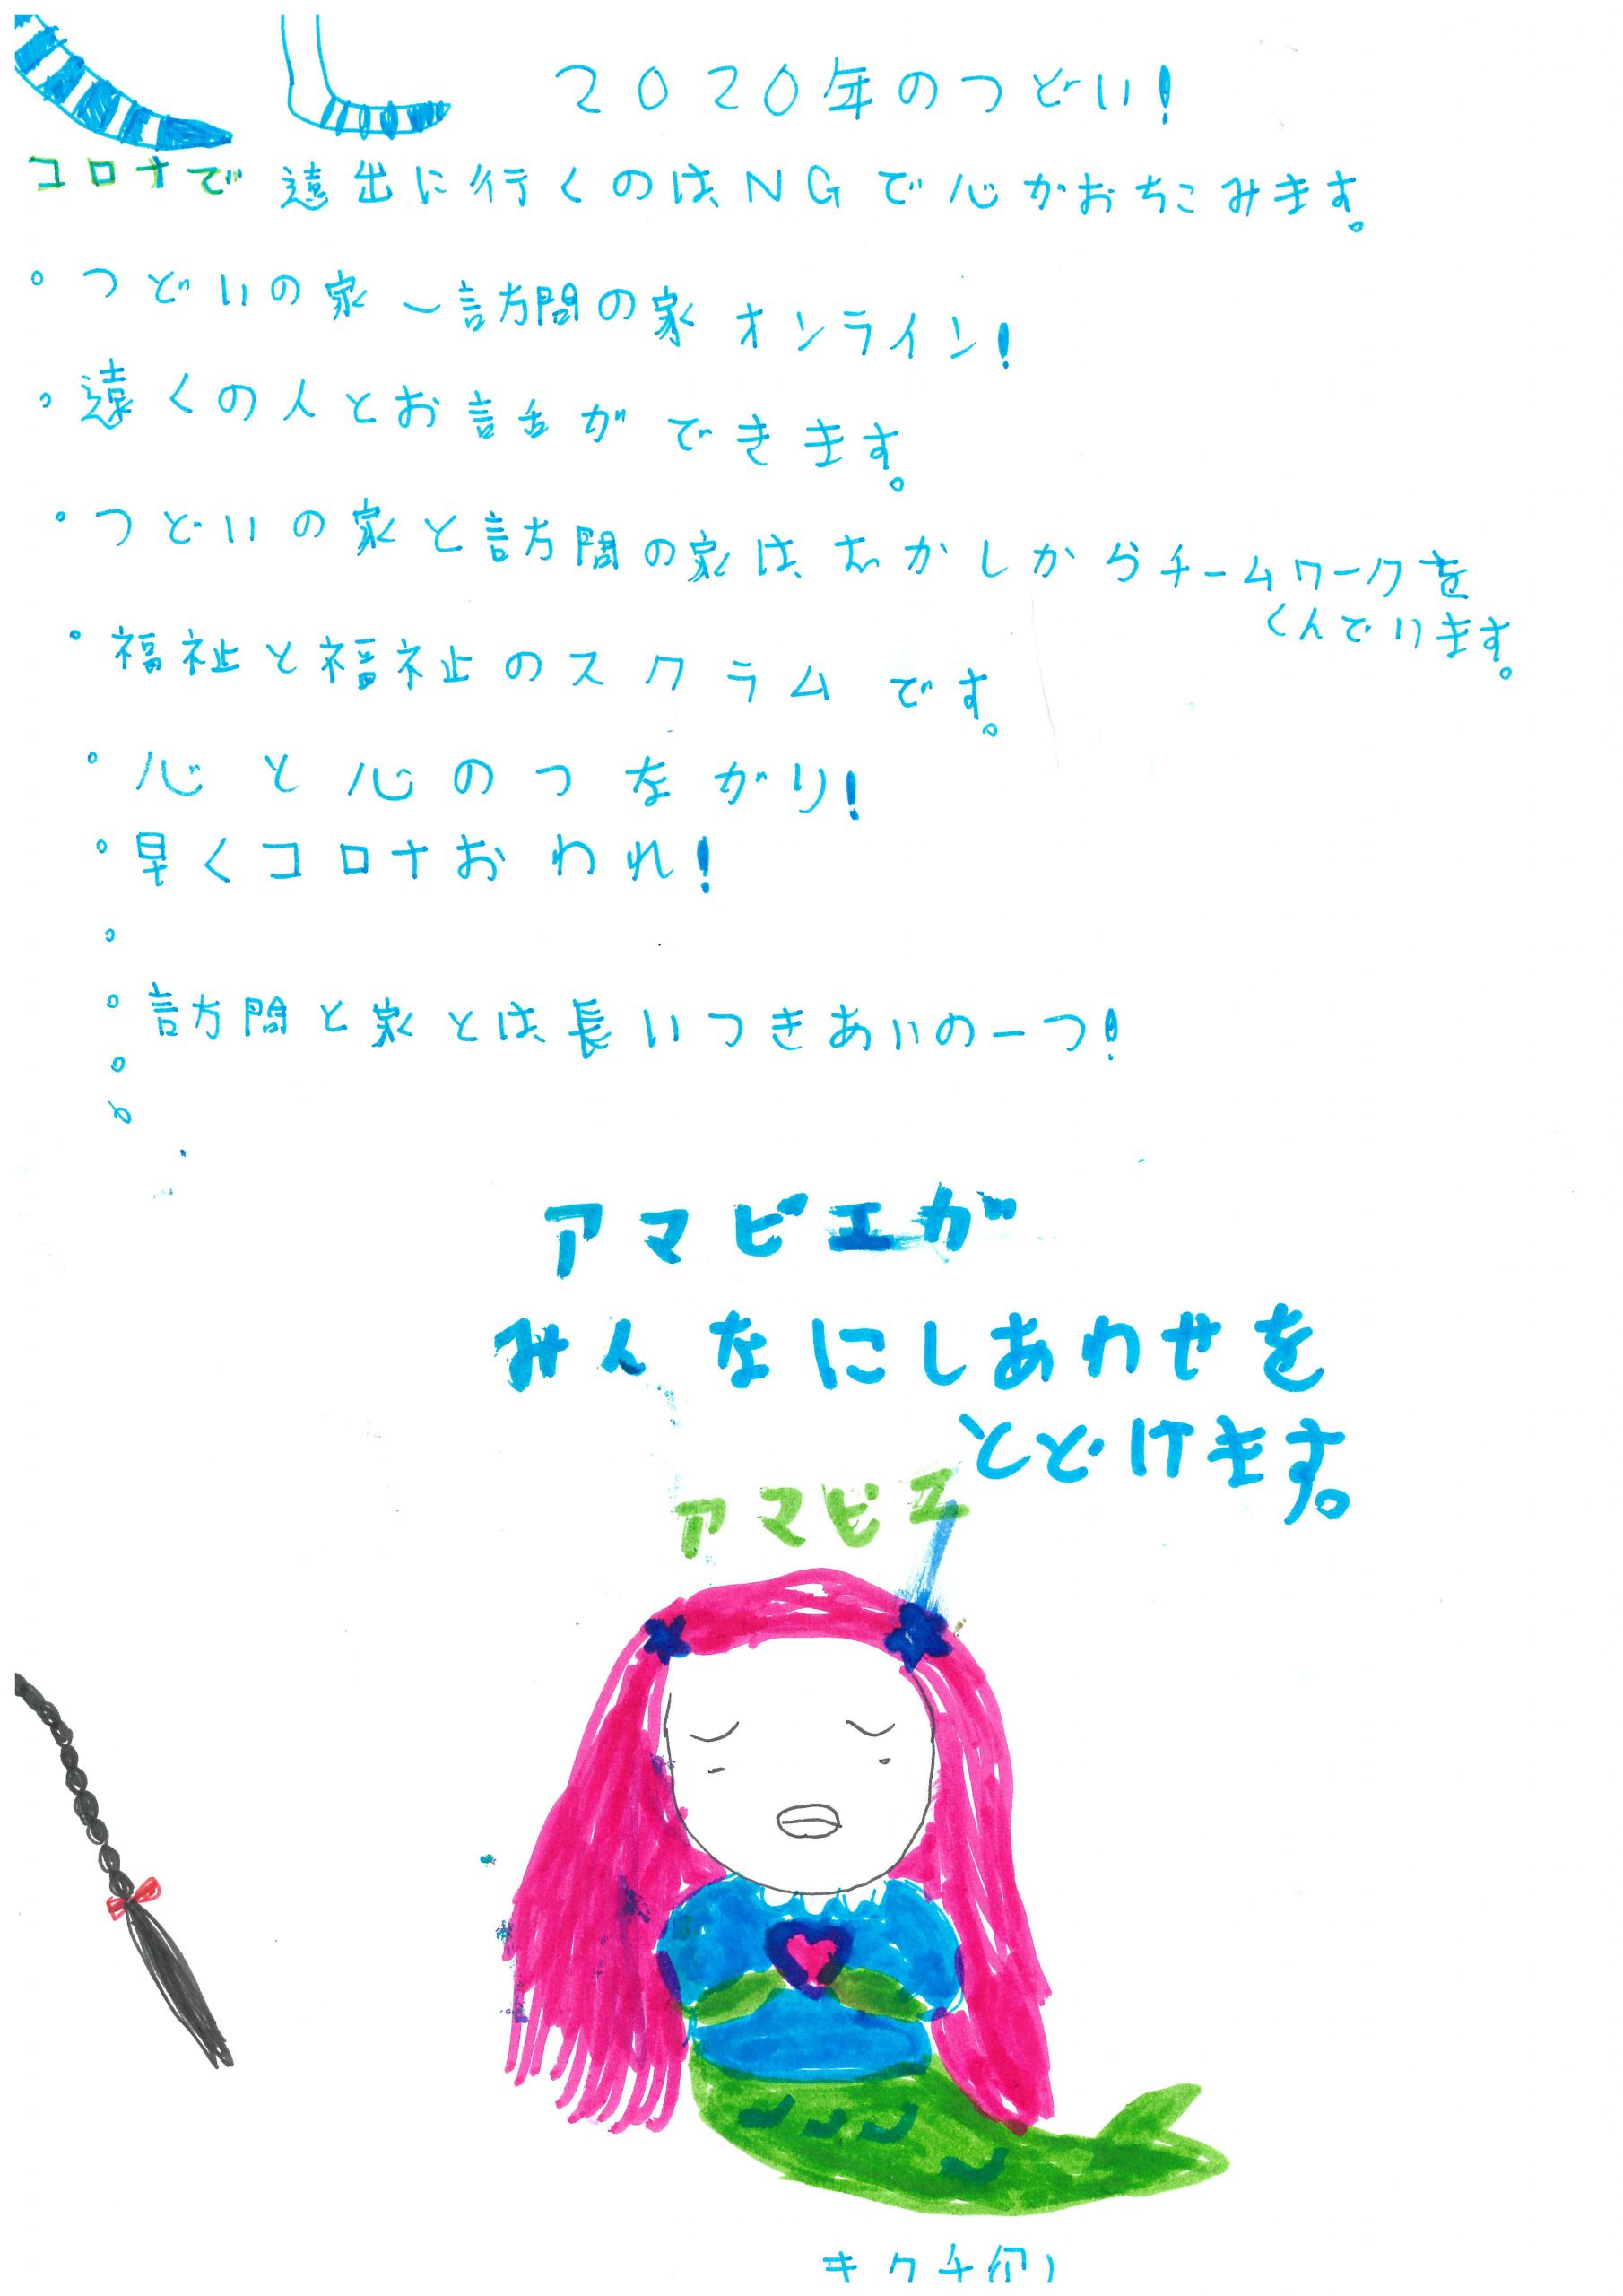 2020年のつどい!
コロナで 遠出に行くのはNGで心がおちこみます。
。つどいの家〜訪問の家オンライン!
。遠くの人とお話ができます。
。つどいの家と訪問の家はむかしからチームワークを
くんでいます。
。福祉と福祉のスクラムです。
。心と心のつながり!
。早くコロナおわれ!
。
。訪問と家とは長いつきあいの一つ!
。
。
アマビエが
みんなにしあわせを
とどけます。
アマビエ
キクチ